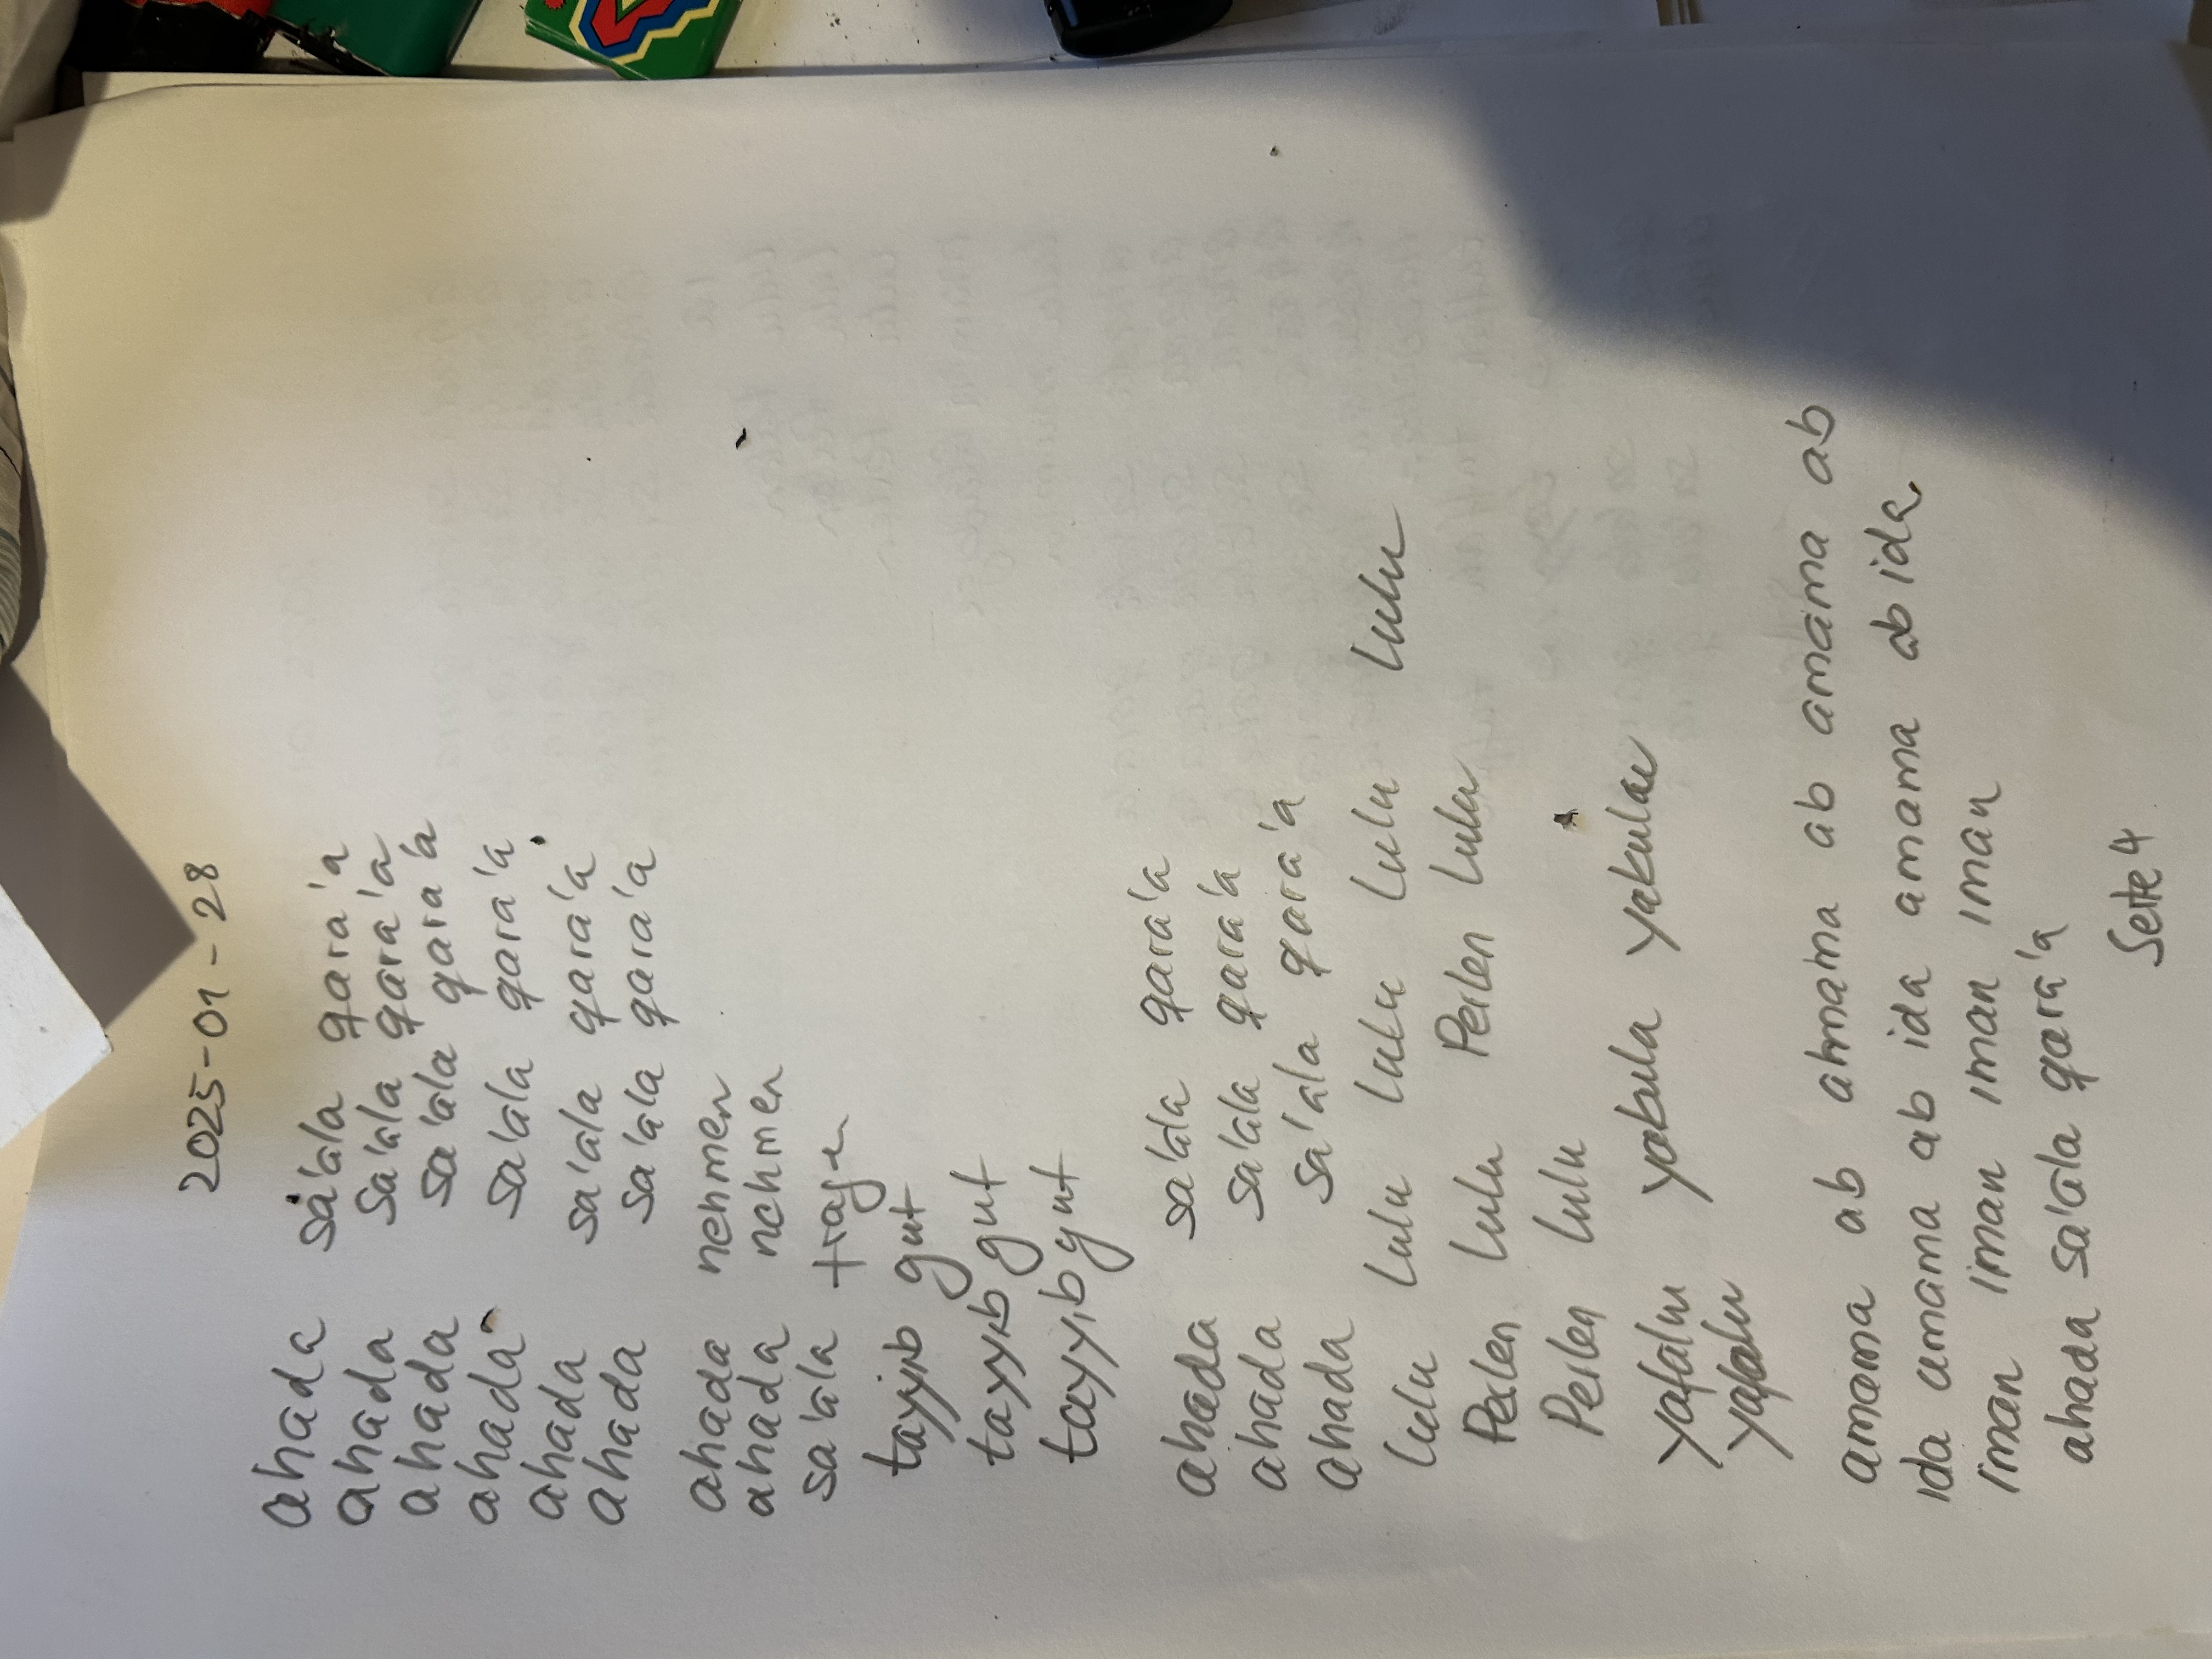 2025-01-28
ahada sa'ala qara'a
ahada sa'ala qara'a
ahada sa'ala qara'a
ahada sa'ala qara'a
ahada sa'ala qara'a
ahada sa'ala qara'a
ahada nehmen
ahada nehmen
sa'ala fragen
tayyib gut
tayyib gut
tayyib gut
ahada sa'ala qara'a
ahada sa'ala qara'a
ahada sa'ala qara'a
lulu lulu lulu lulu lulu
Perlen lulu Perlen lulu
Perlen lulu
yafalu yakula yakulu
yafalu
amama ab amama ab amama ab
ida amama ab ida amama ab ida
iman iman iman iman
ahada sa'ala qara'a
Seite 4